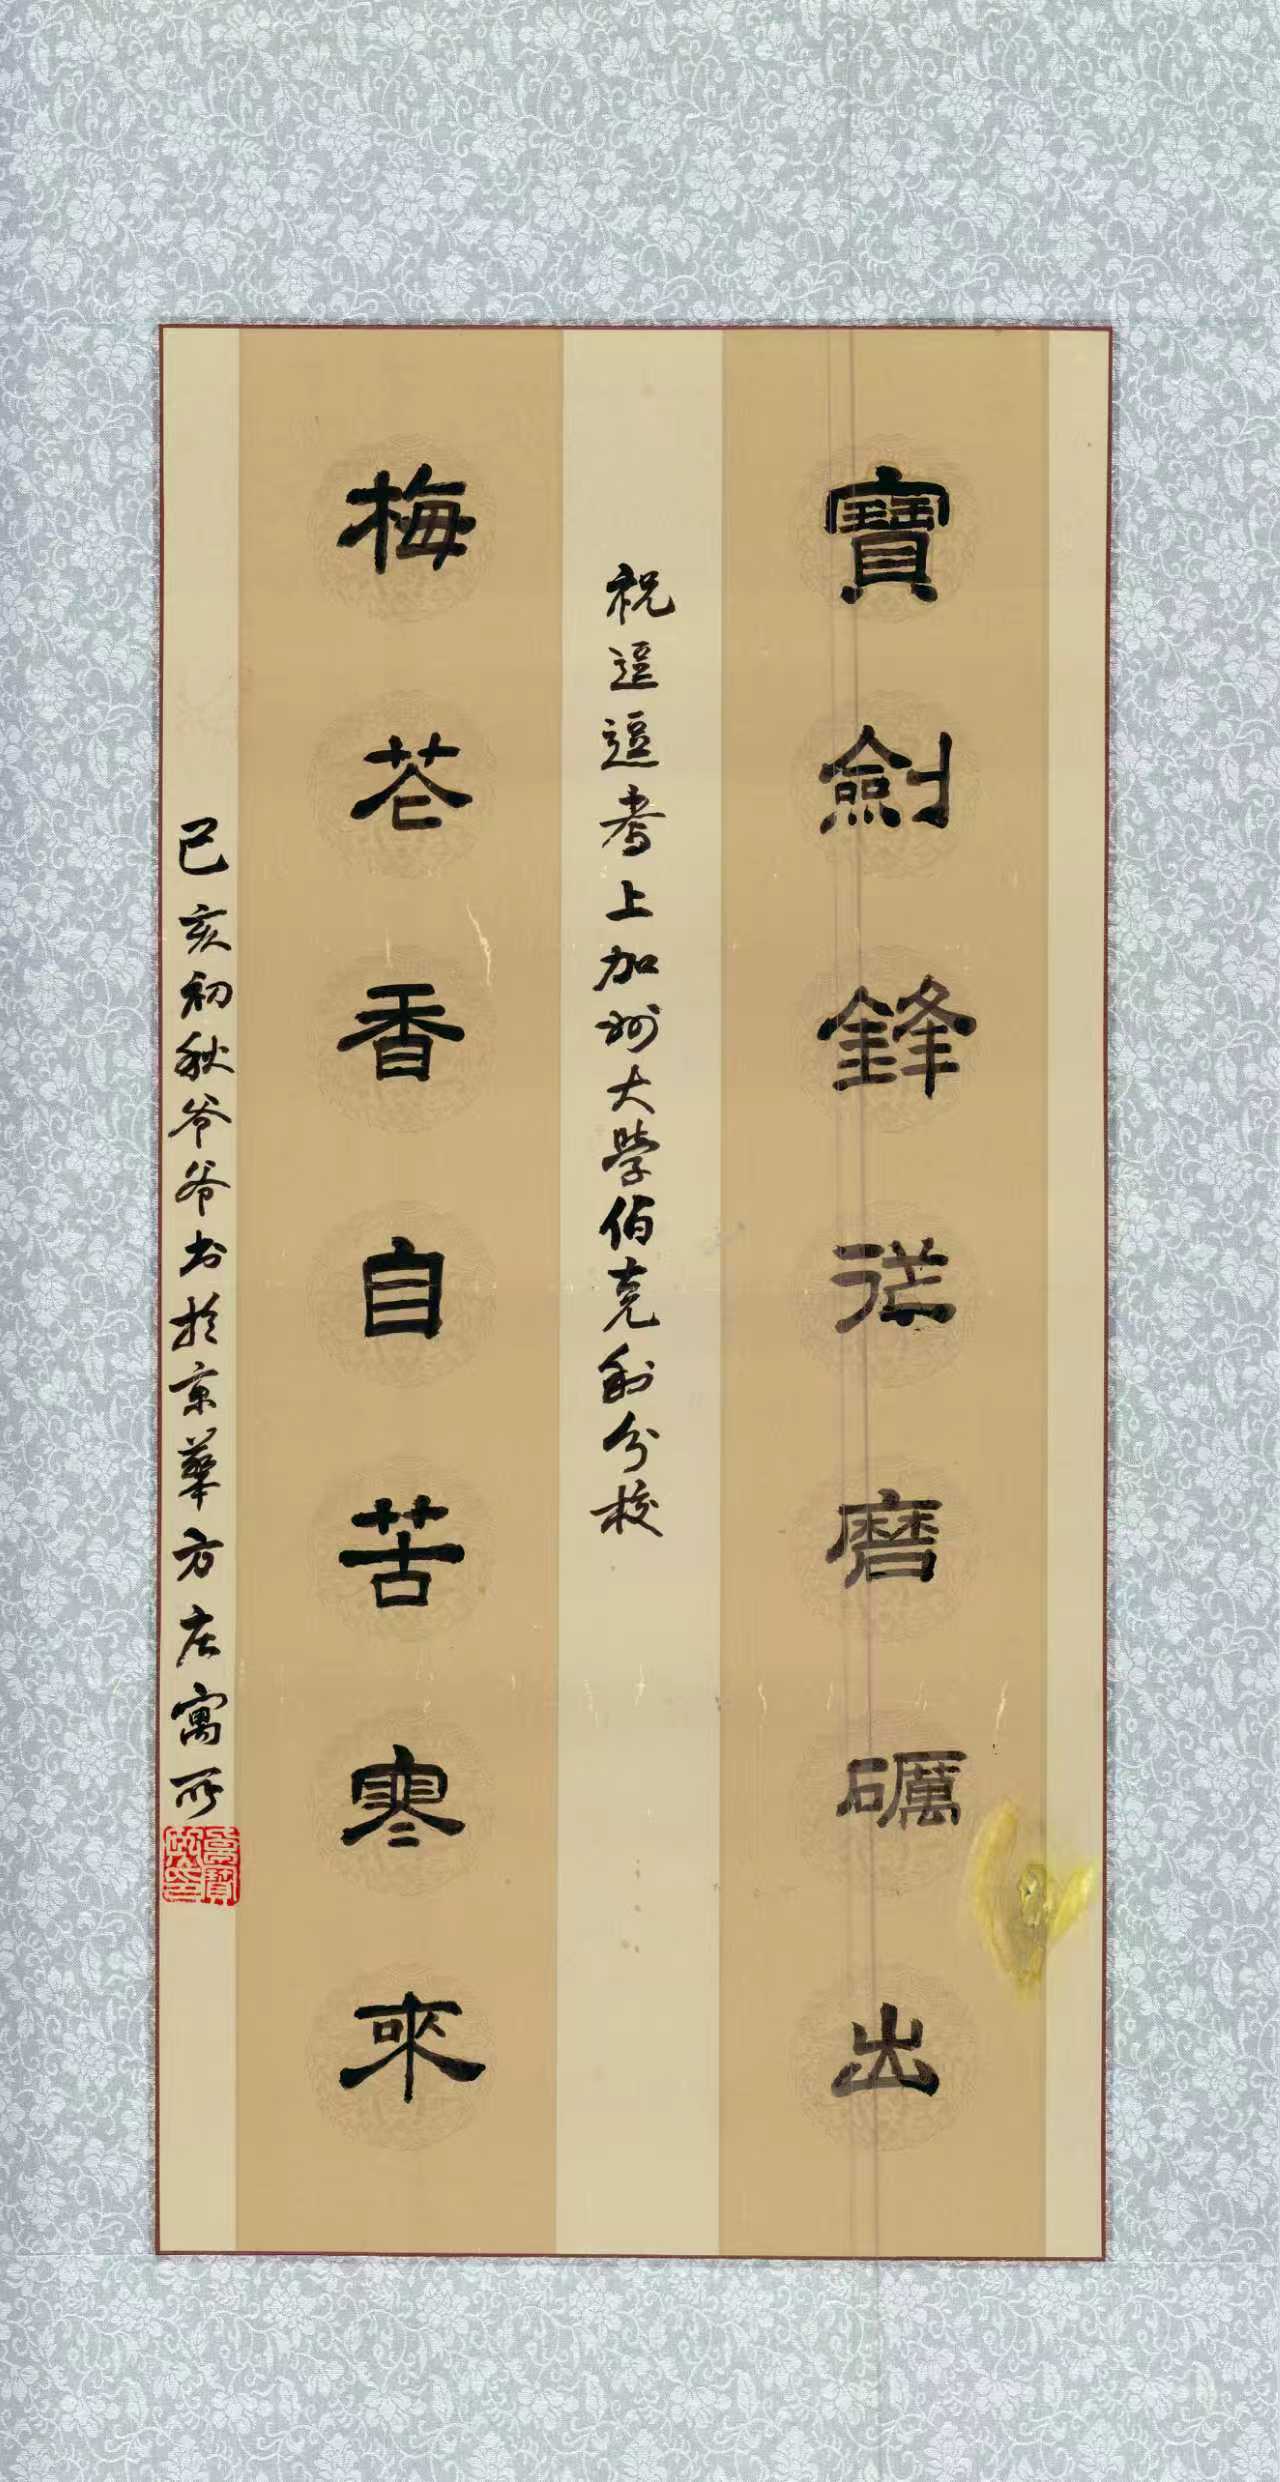 寶劍鋒從磨礪出
祝逗逗考上加州大學伯克利分校
梅花香自苦寒來
己亥初秋爷爷书於京華方庄寓所